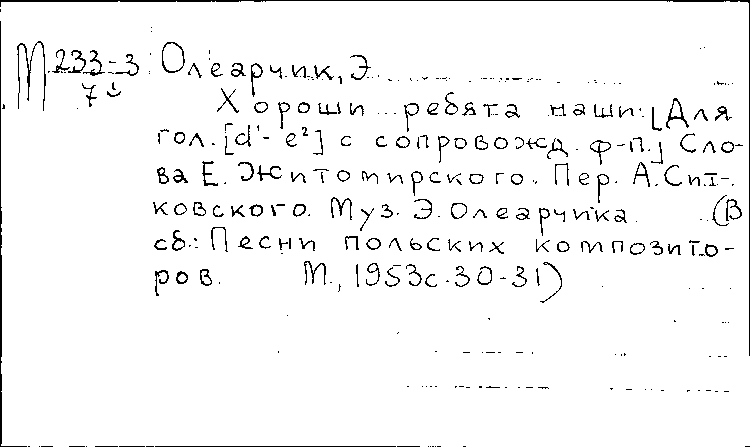 М 233-3 Олеарчик, Э.
7
Хороши ребята наши: [Для
гол. [d¹- e²] с сопровожд. ф-п.] Сло-
ва Е. Житомирского. Пер. А. Сит-
ковского. Муз. Э. Олеарчика. (В
сб.: Песни польских композито-
ров. М., 1953 с. 30-31)